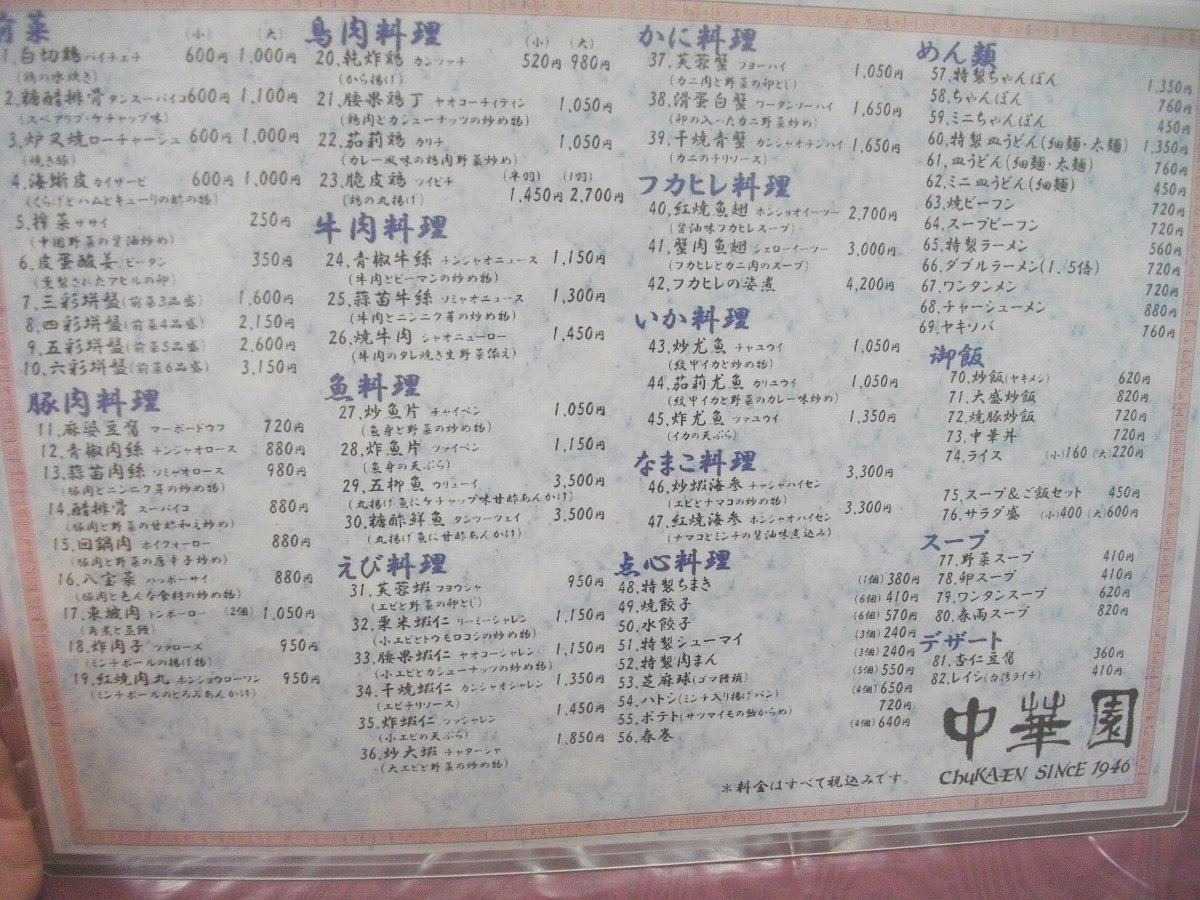 前菜 (小) (大)
1.白切鶏 パイチェチ 600円 1,000円
(鶏の水焚き)
2.糖醋排骨 タンスーパイコ 600円 1,100円
(スペアリブ・ケチャップ味)
3.炉叉焼 ローチャーシュ 600円 1,000円
(焼き豚)
4.海蜇皮 カイザーピ 600円 1,000円
(くらげとハムとキューリの酢の物)
5.搾菜 ザサイ 250円
(中国野菜の醤油炒め)
6.皮蛋酸姜 ピータン 350円
(燻製されたアヒルの卵)
7.三彩拼盤(前菜3品盛) 1,600円
8.四彩拼盤(前菜4品盛) 2,150円
9.五彩拼盤(前菜5品盛) 2,600円
10.六彩拼盤(前菜6品盛) 3,150円
豚肉料理
11.麻婆豆腐 マーボードウフ 720円
12.青椒肉絲 チンジャオロース 880円
13.蒜苗肉絲 ソミャオロース 980円
(豚肉とニンニク芽の炒め物)
14.醋排骨 スーパイコ 880円
(豚肉と野菜の甘酢和え炒め)
15.回鍋肉 ホイフォーロー 880円
(豚肉と野菜の唐辛子炒め)
16.八宝菜 ハッポーサイ 880円
(豚肉と色んな食材の炒め物)
17.東坡肉 トンポーロー (2個) 1,050円
(角煮と蒸饅)
18.炸肉子 ツァローズ 950円
(ミンチボールの揚げ物)
19.紅焼肉丸 ホンショウローワン 950円
(ミンチボールのとろみあんかけ)
鳥肉料理 (小) (大)
20.乾炸鶏 カンツァチ 520円 980円
(から揚げ)
21.腰果鶏丁 ヤオコーチィティン 1,050円
(鶏肉とカシューナッツの炒め物)
22.茄莉鶏 カリチ 1,050円
(カレー風味の鶏肉野菜炒め)
23.脆皮鶏 ツイピチ (半羽) 1,450円 (1羽) 2,700円
(鶏の丸揚げ)
牛肉料理
24.青椒牛絲 チンジャオニュース 1,150円
(牛肉とピーマンの炒め物)
25.蒜苗牛絲 ソミャオニュース 1,300円
(牛肉とニンニク芽の炒め物)
26.焼牛肉 シャオニューロー 1,450円
(牛肉のタレ焼き生野菜添え)
魚料理
27.炒魚片 チャイペン 1,050円
(魚身と野菜の炒め物)
28.炸魚片 ツァイペン 1,150円
(魚身の天ぷら)
29.五柳魚 ウリューイ 3,500円
(丸揚げ魚にケチャップ味甘酢あんかけ)
30.糖酢鮮魚 タンツーツェイ 3,500円
(丸揚げ魚に甘酢あんかけ)
えび料理
31.芙蓉蝦 フヨウシャ 950円
(エビと野菜の卵とじ)
32.栗米蝦仁 リーミーシャレン 1,150円
(小エビとトウモロコシの炒め物)
33.腰果蝦仁 ヤオコーシャレン 1,150円
(小エビとカシューナッツの炒め物)
34.干焼蝦仁 カンシャオシャレン 1,350円
(エビチリソース)
35.炸蝦仁 ツァシャレン 1,450円
(小エビの天ぷら)
36.炒大蝦 チャターシャ 1,850円
(大エビと野菜の炒め物)
かに料理
37.芙蓉蟹 フヨーハイ 1,050円
(カニ肉と野菜の卵とじ)
38.滑蛋白蟹 ワータンソーハイ 1,650円
(卵の入ったカニ野菜炒め)
39.干焼青蟹 カンシャオチンハイ 1,650円
(カニのチリソース)
フカヒレ料理
40.紅焼魚翅 ホンショオイーツー 2,700円
(醤油味フカヒレスープ)
41.蟹肉魚翅 シェローイーツー 3,000円
(フカヒレとカニ肉のスープ)
42.フカヒレの姿煮 4,200円
いか料理
43.炒尤魚 チャユウイ 1,050円
(紋甲イカと野菜の炒め物)
44.茄莉尤魚 カリユウイ 1,050円
(紋甲イカと野菜のカレー味炒め)
45.炸尤魚 ツァユウイ 1,350円
(イカの天ぷら)
なまこ料理
46.炒蝦海参 チャシャハイセン 3,300円
(エビとナマコの炒め物)
47.紅焼海参 ホンシャオハイセン 3,300円
(ナマコとミンチの醤油味煮込み)
点心料理
48.特製ちまき (1個) 380円
49.焼餃子 (6個) 410円
50.水餃子 (6個) 570円
51.特製シューマイ (3個) 240円
52.特製肉まん (3個) 240円
53.芝麻球(ゴマ饅頭) (5個) 550円
54.ハトシ(ミンチ入り揚げパン) (4個) 650円
55.ポテト(サツマイモの飴からめ) 720円
56.春巻 (4個) 640円
めん類
57.特製ちゃんぽん 1,350円
58.ちゃんぽん 760円
59.ミニちゃんぽん 450円
60.特製皿うどん(細麺・太麺) 1,350円
61.皿うどん(細麺・太麺) 760円
62.ミニ皿うどん(細麺) 450円
63.焼ビーフン 720円
64.スープビーフン 720円
65.特製ラーメン 560円
66.ダブルラーメン(1.5倍) 720円
67.ワンタンメン 720円
68.チャーシューメン 880円
69.ヤキソバ 760円
御飯
70.炒飯(ヤキメシ) 620円
71.大盛炒飯 820円
72.焼豚炒飯 720円
73.中華丼 720円
74.ライス (小)160 (大)220円
75.スープ&ご飯セット 450円
76.サラダ盛 (小)400 (大)600円
スープ
77.野菜スープ 410円
78.卵スープ 410円
79.ワンタンスープ 620円
80.春雨スープ 820円
デザート
81.杏仁豆腐 360円
82.レイシ(台湾ライチ) 410円
中華園
ChuKA-EN SINCE 1946
*料金はすべて税込みです。